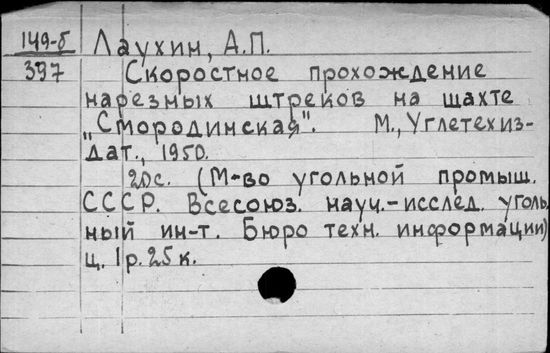 149-б Лаухин, А.П.
397 Скоростное прохождение
нарезных штреков на шахте
„Смородинская". М., Углетехиз-
дат., 1950.
20с. (М-во угольной промыш.
СССР. Всесоюз. науч.-исслед. уголь-
ный ин-т. Бюро техн. информации)
ц. 1р. 25к.